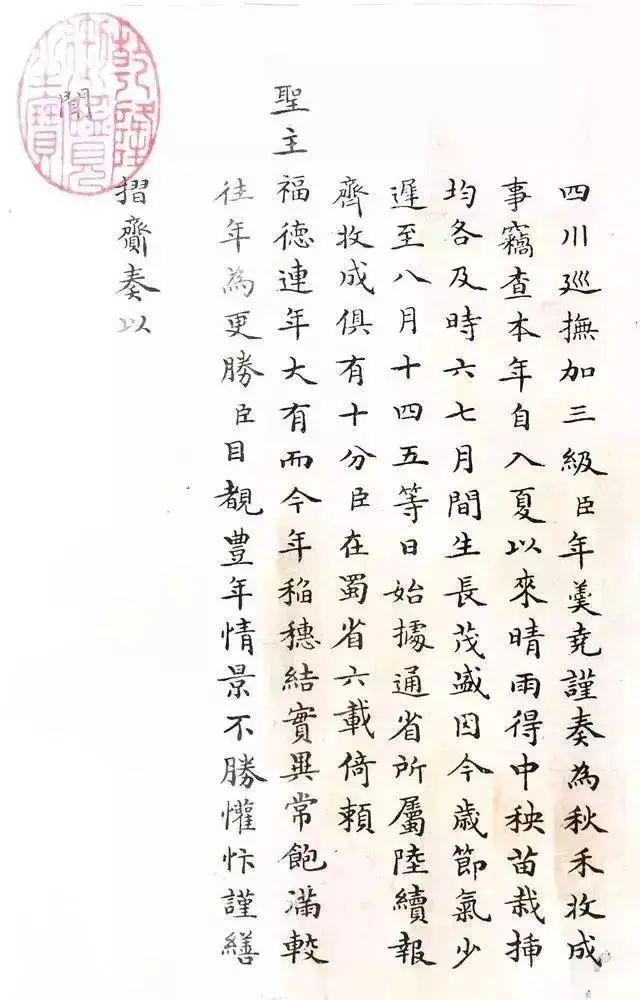 四川廵撫加三級臣年羹堯謹奏為秋禾收成
事竊查本年自入夏以來晴雨得中秧苗栽揷
均各及時六七月間生長茂盛因今歲節氣少
遲至八月十四五等日始據通省所屬陸續報
齊收成俱有十分臣在蜀省六載倚賴
聖主
福德連年大有而今年稻穗結實異常飽滿較
徃年為更勝臣目覩豊年情景不勝懽忭謹繕
摺齎奏以
聞
乾隆御覽之寶